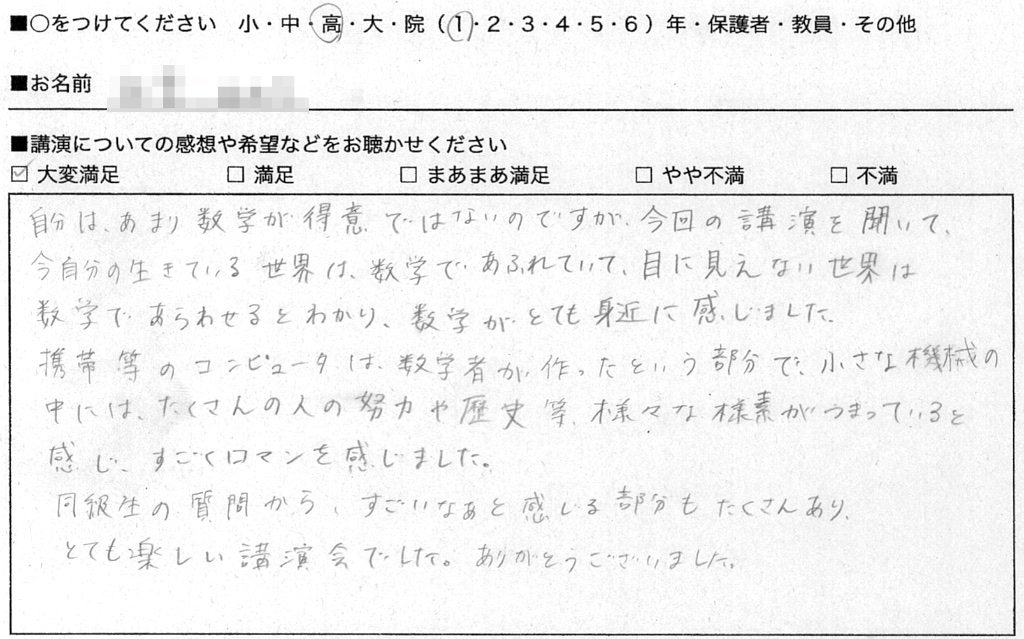 ■○をつけてください 小・中・高・大・院（1・2・3・4・5・6）年・保護者・教員・その他
■お名前
■講演についての感想や希望などをお聴かせください
☑ 大変満足 □ 満足 □ まあまあ満足 □ やや不満 □ 不満
自分は、あまり数学が得意ではないのですが、今回の講演を聞いて、
今自分の生きている世界は、数学であふれていて、目に見えない世界は
数学であらわせるとわかり、数学がとても身近に感じました。
携帯等のコンピュータは、数学者が作ったという部分で、小さな機械の
中には、たくさんの人の努力や歴史等、様々な様素がつまっていると
感じ、すごくロマンを感じました。
同級生の質問から、すごいなあと感じる部分もたくさんあり、
とても楽しい講演会でした。ありがとうございました。